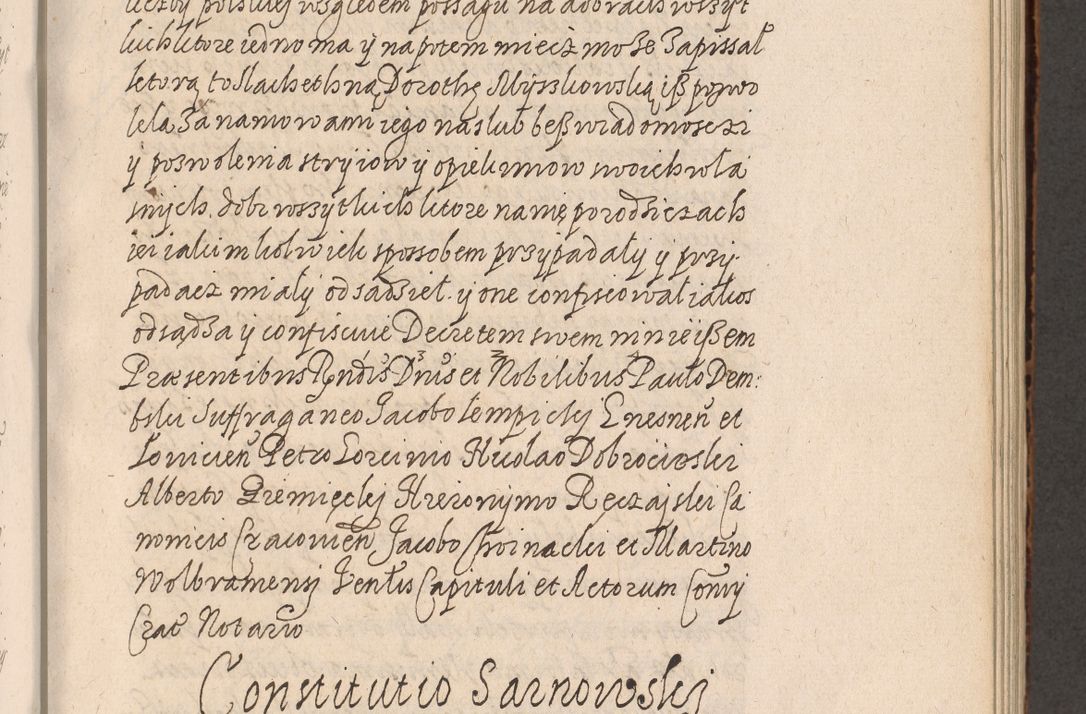 liczby polskiej wsględem possagu na dobrach wszyt
kich ktore iedno ma ÿ napotem miecż może Zapissał
ktorą to slachethną Dorothę Mÿsskowską iß pozwo
lela Za namowami iego na slub beß wiadomosczi
y poswolenia strÿiow ÿ opiekunow swoich wła
snÿch dobr wszÿtkich ktore namę porodziczach
iei iakimkolwiek spossobem przÿpadałÿ ÿ przÿ
padacż miałÿ odsądził ÿ one confiscował iakos
odsądza ÿ confiscuie Decretem swem ninieißem
Præsentibus Rndis Dnis et Nobilibus Paulo Dem:
bski Suffraganeo Jacobo lempickÿ Gnesnen et
Lovicien Petro Gorcinio Nicolao Dobrocieski
Alberto Premięckÿ Hieronÿmo Ręczajski Ca
nonicis Cracovien Jacobo Choinacki et Martino
Wolbramensj Ventis Capituli et Actorum Conÿ
Crac Notario
Constitutio Sarnowskj